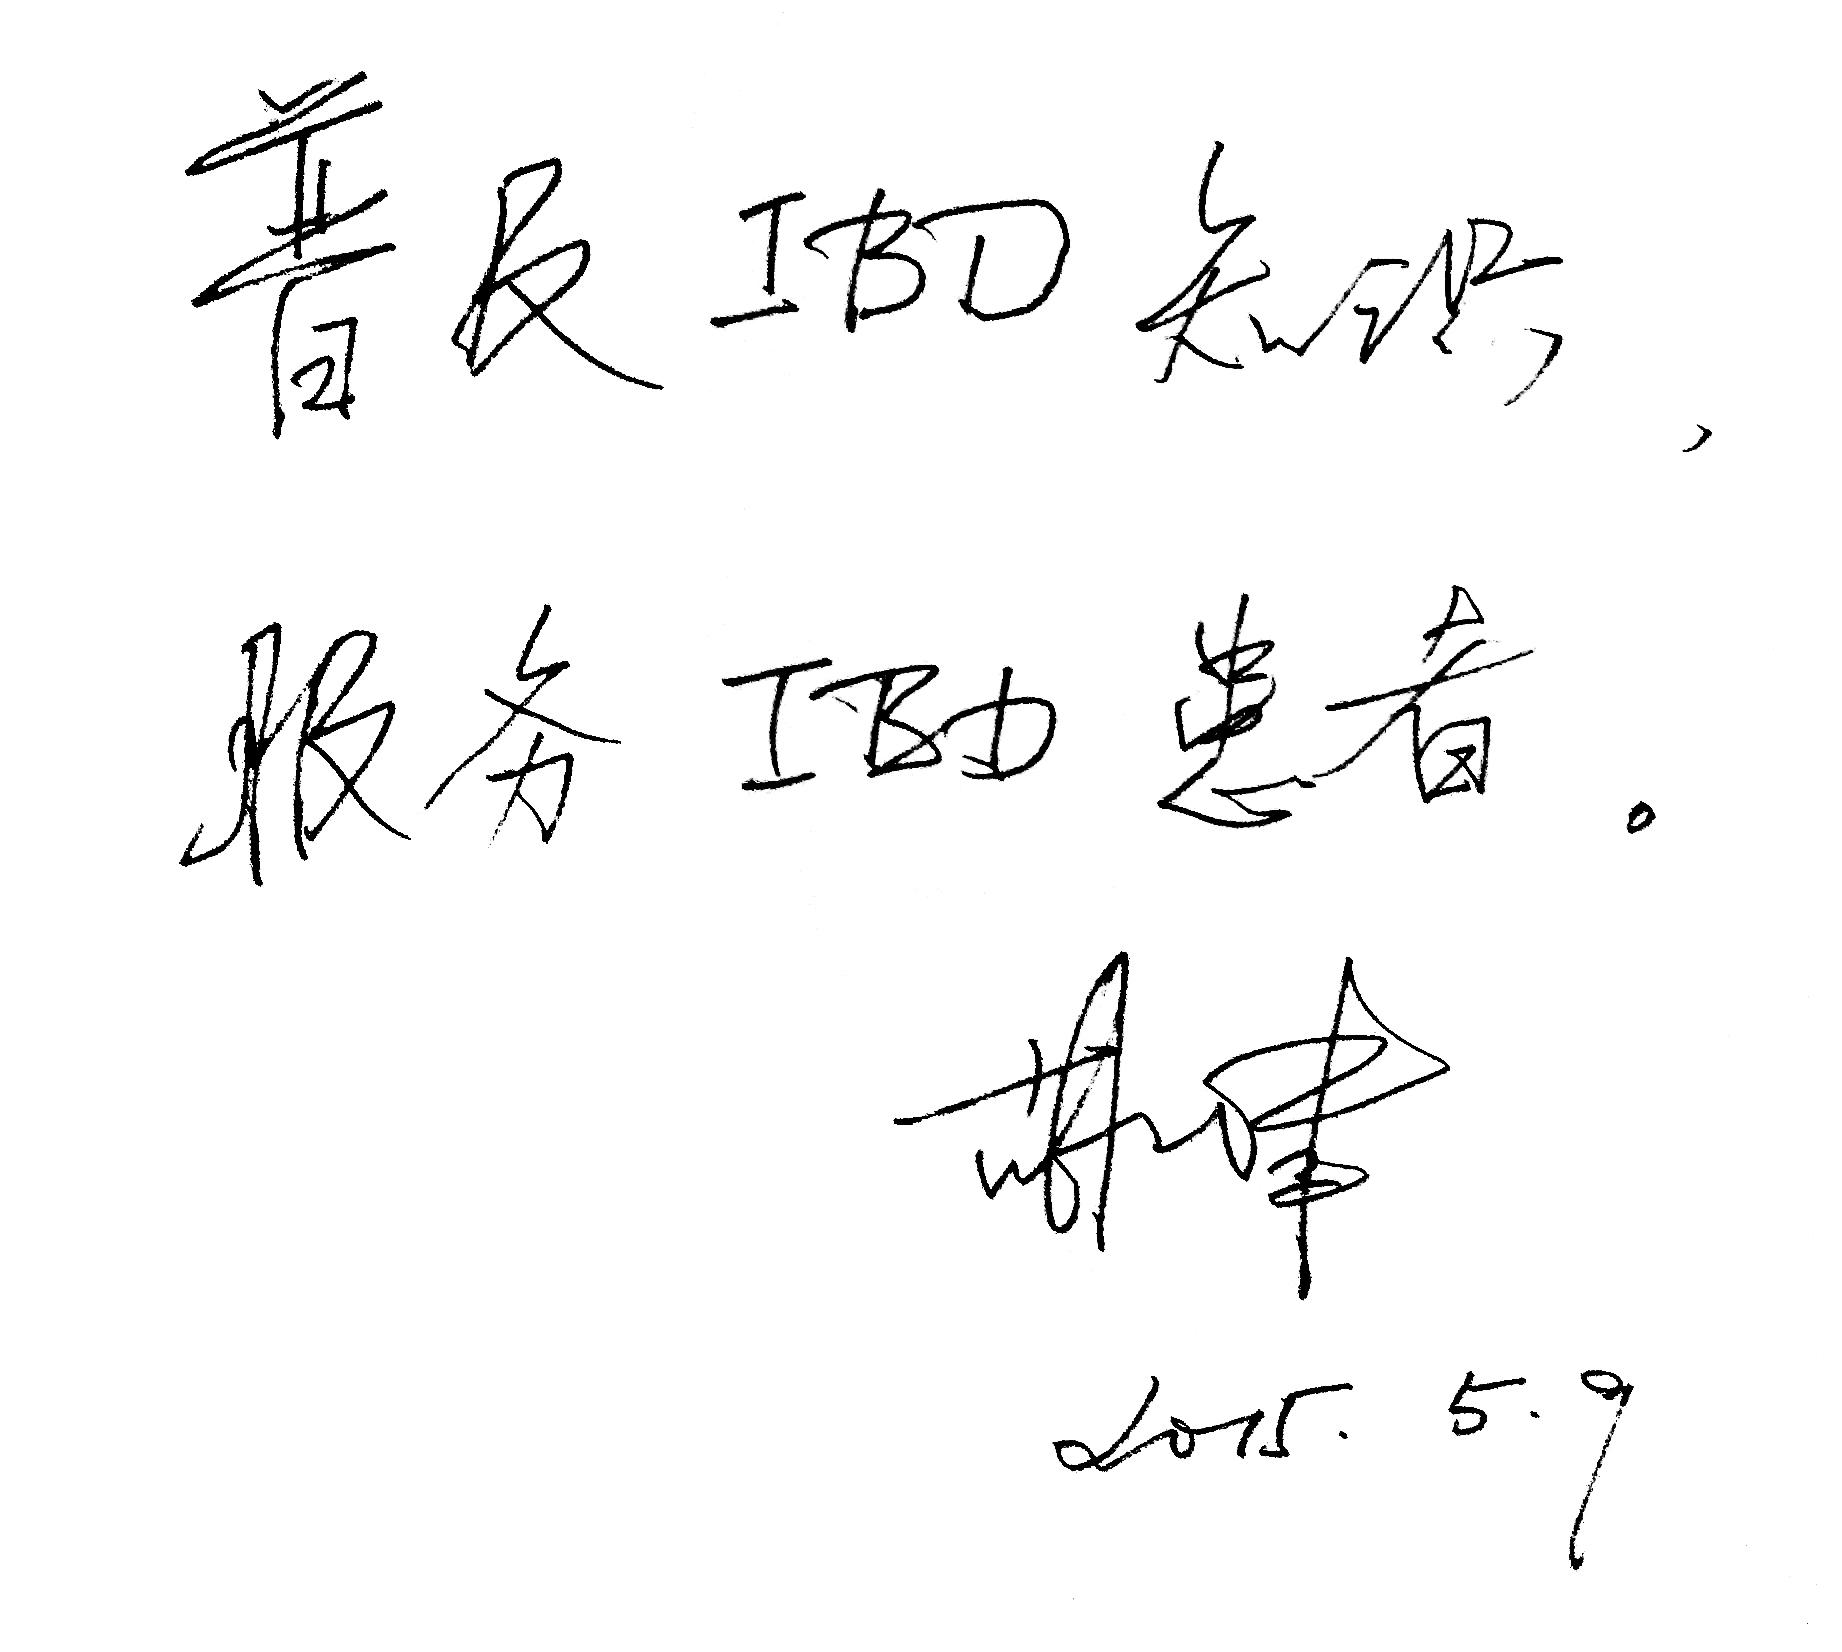 普及IBD知识，
服务IBD患者。
2015.5.9